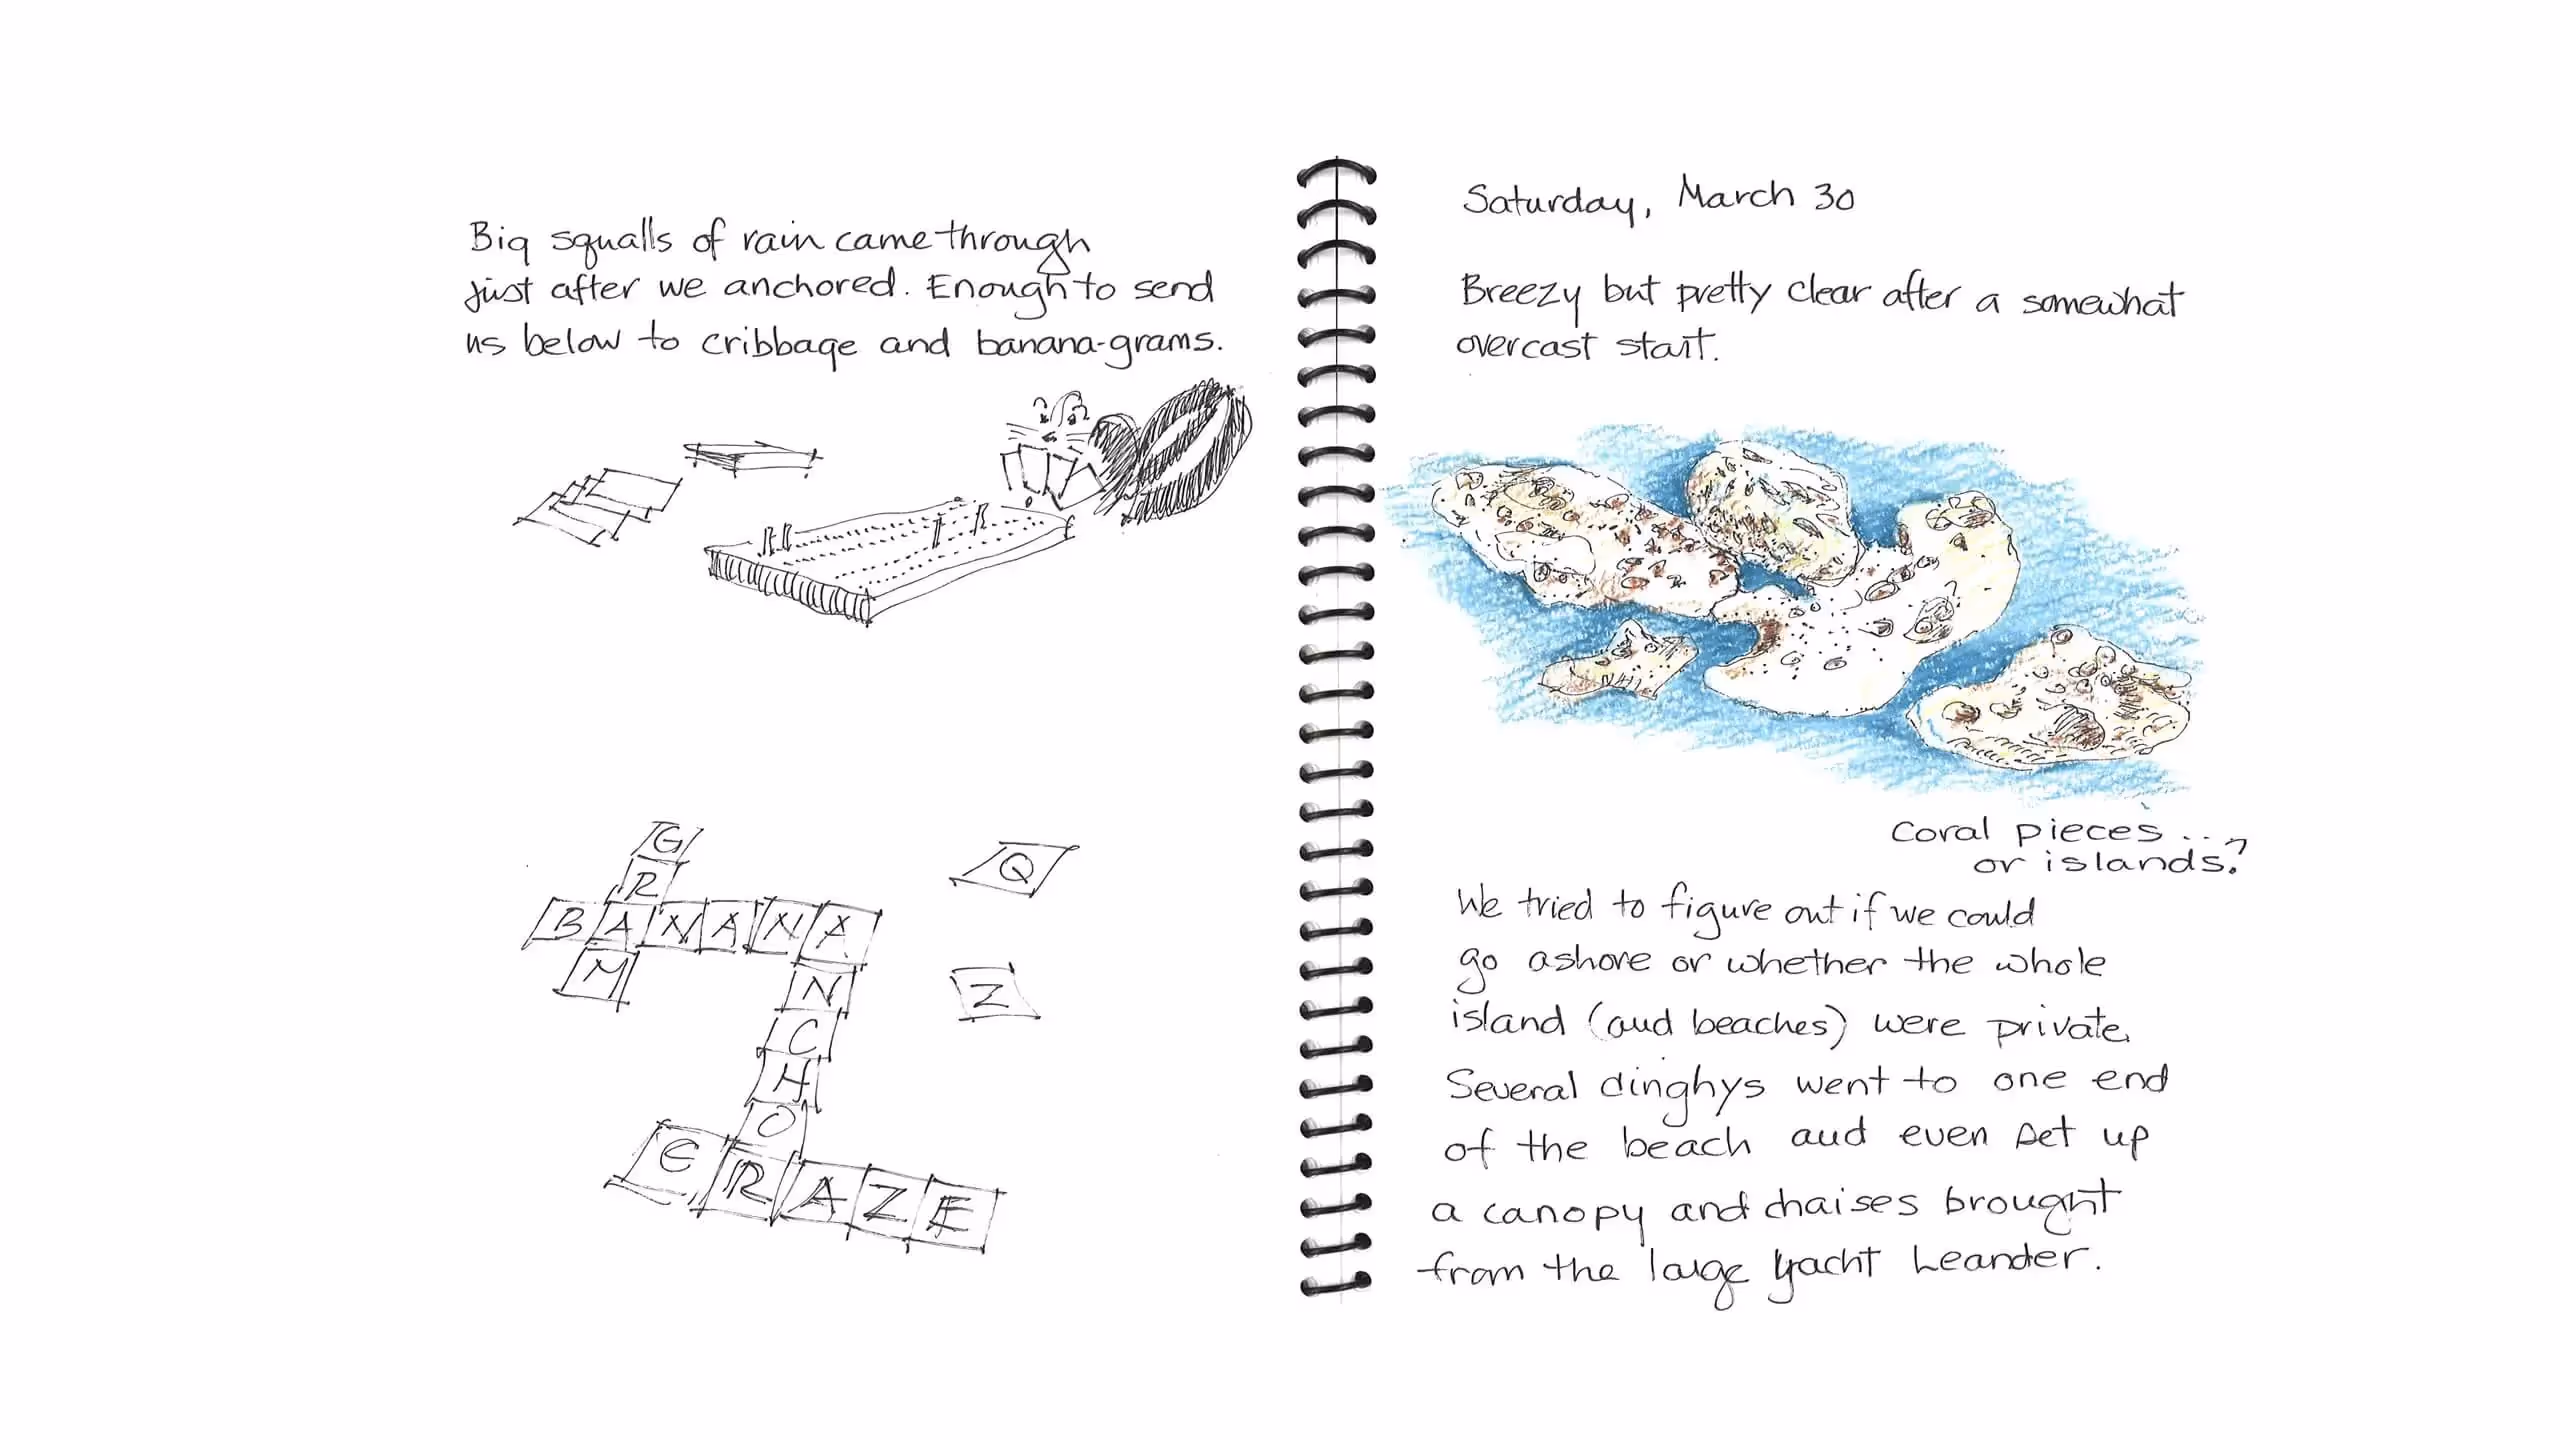 Big squalls of rain came through
just after we anchored. Enough to send
us below to cribbage and banana-grams.
G
R
BANANA
M
N
C
H
O
CRAZE
Q
Z
Saturday, March 30
Breezy but pretty clear after a somewhat
overcast start.
Coral pieces...
or islands?
We tried to figure out if we could
go ashore or whether the whole
island (and beaches) were private.
Several dinghys went to one end
of the beach and even set up
a canopy and chaises brought
from the large yacht Leander.